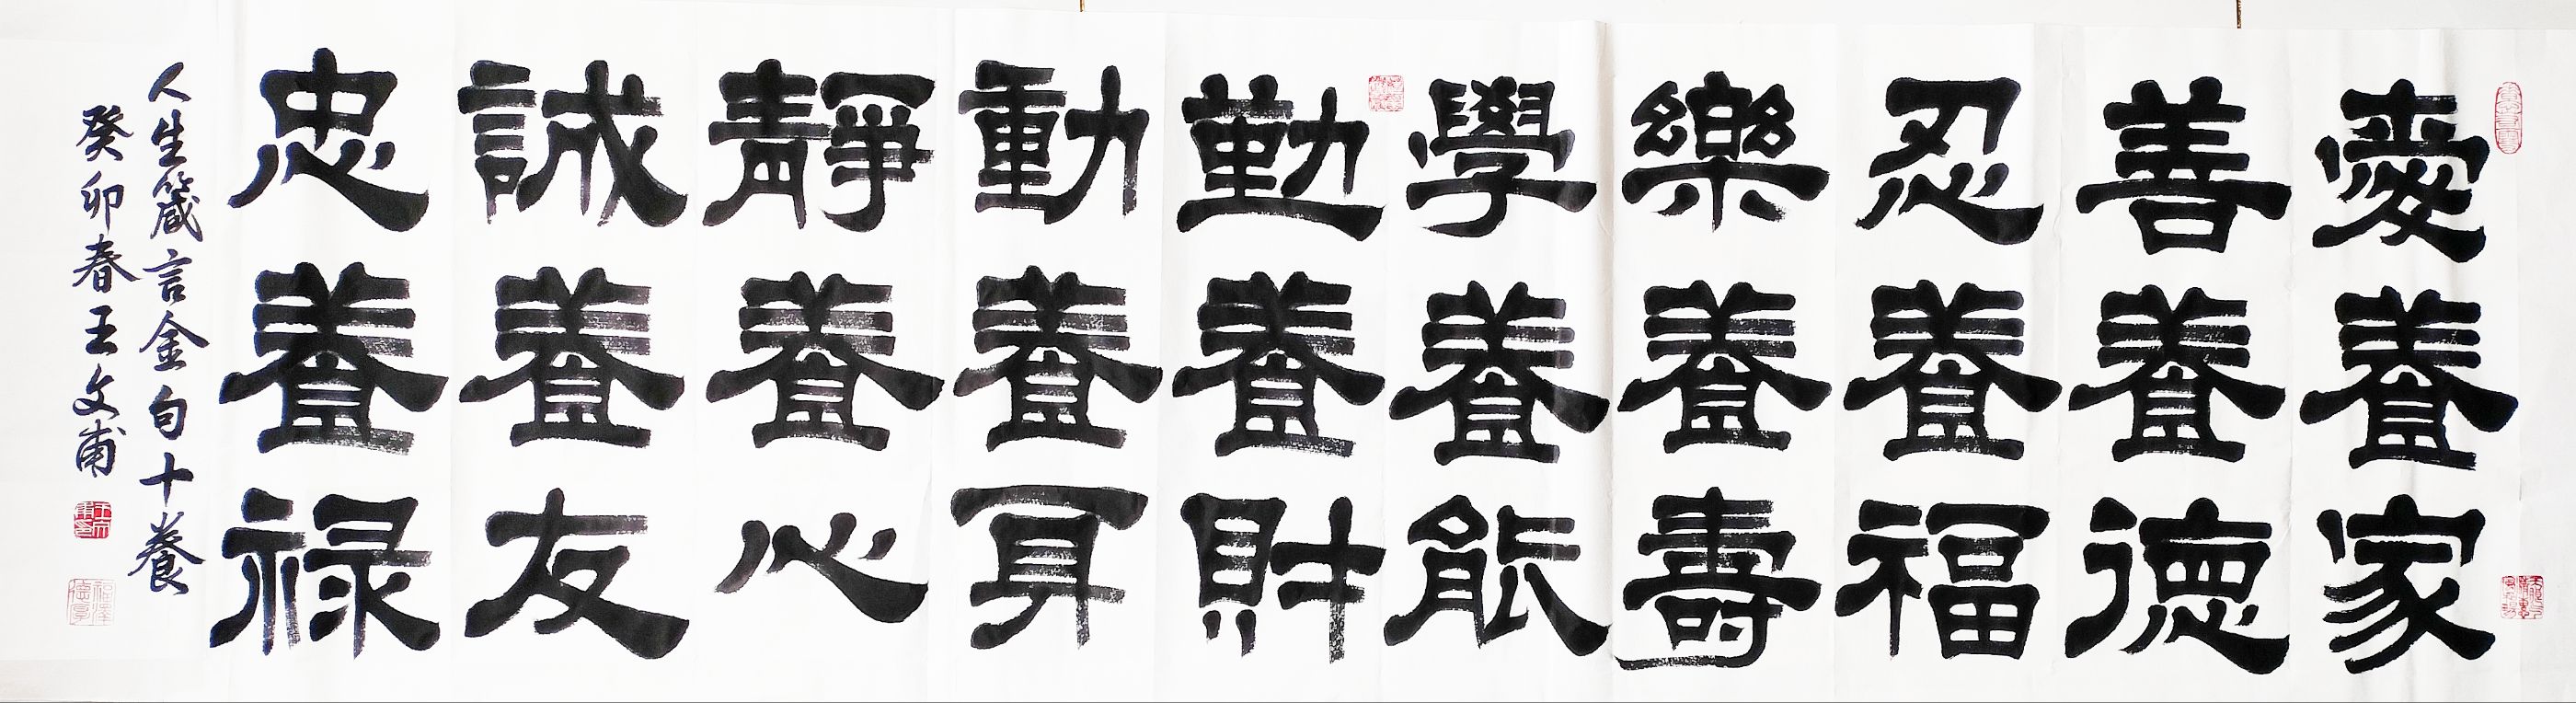 愛養家
善養德
忍養福
樂養壽
學養能
勤養財
動養耳
靜養心
誠養友
忠養禄
人生箴言金句十養
癸卯春王文甫